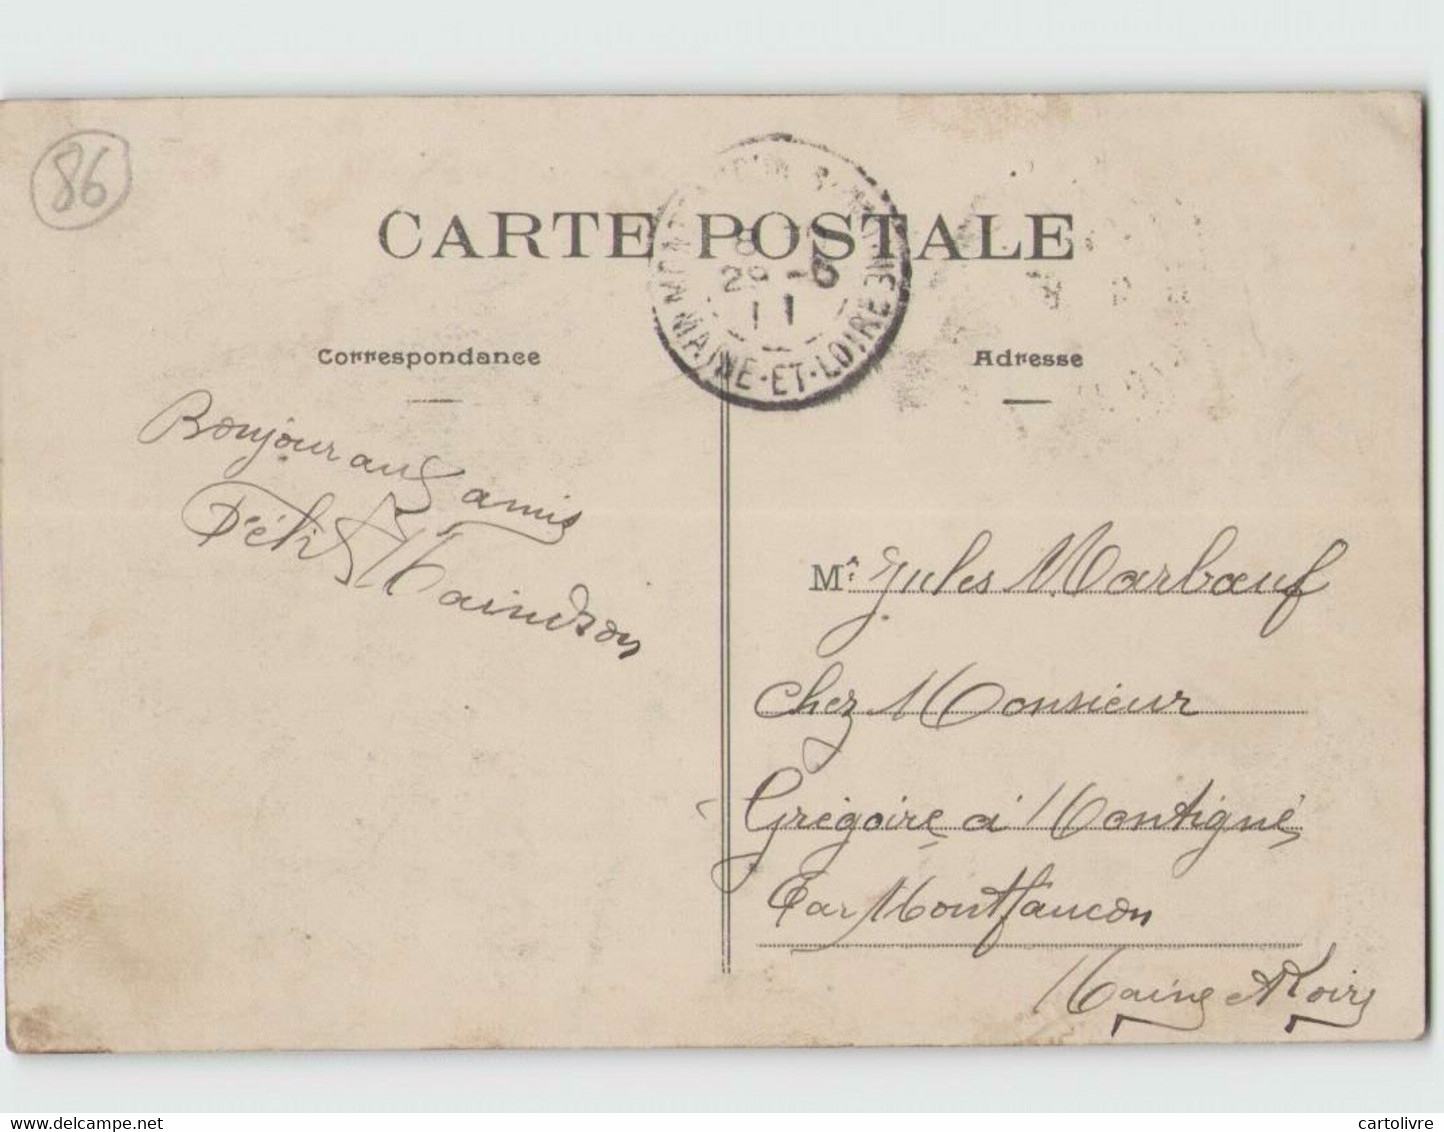 86
CARTE POSTALE
8
29 -6
11
MAINE-ET-LOIRE
Correspondance
Adresse
Bonjour aux amis
Félix
Mr. Jules Marbœuf
chez Monsieur
Grégoire à Montigné
Par Montfaucon
Maine et Loire
cartolivre